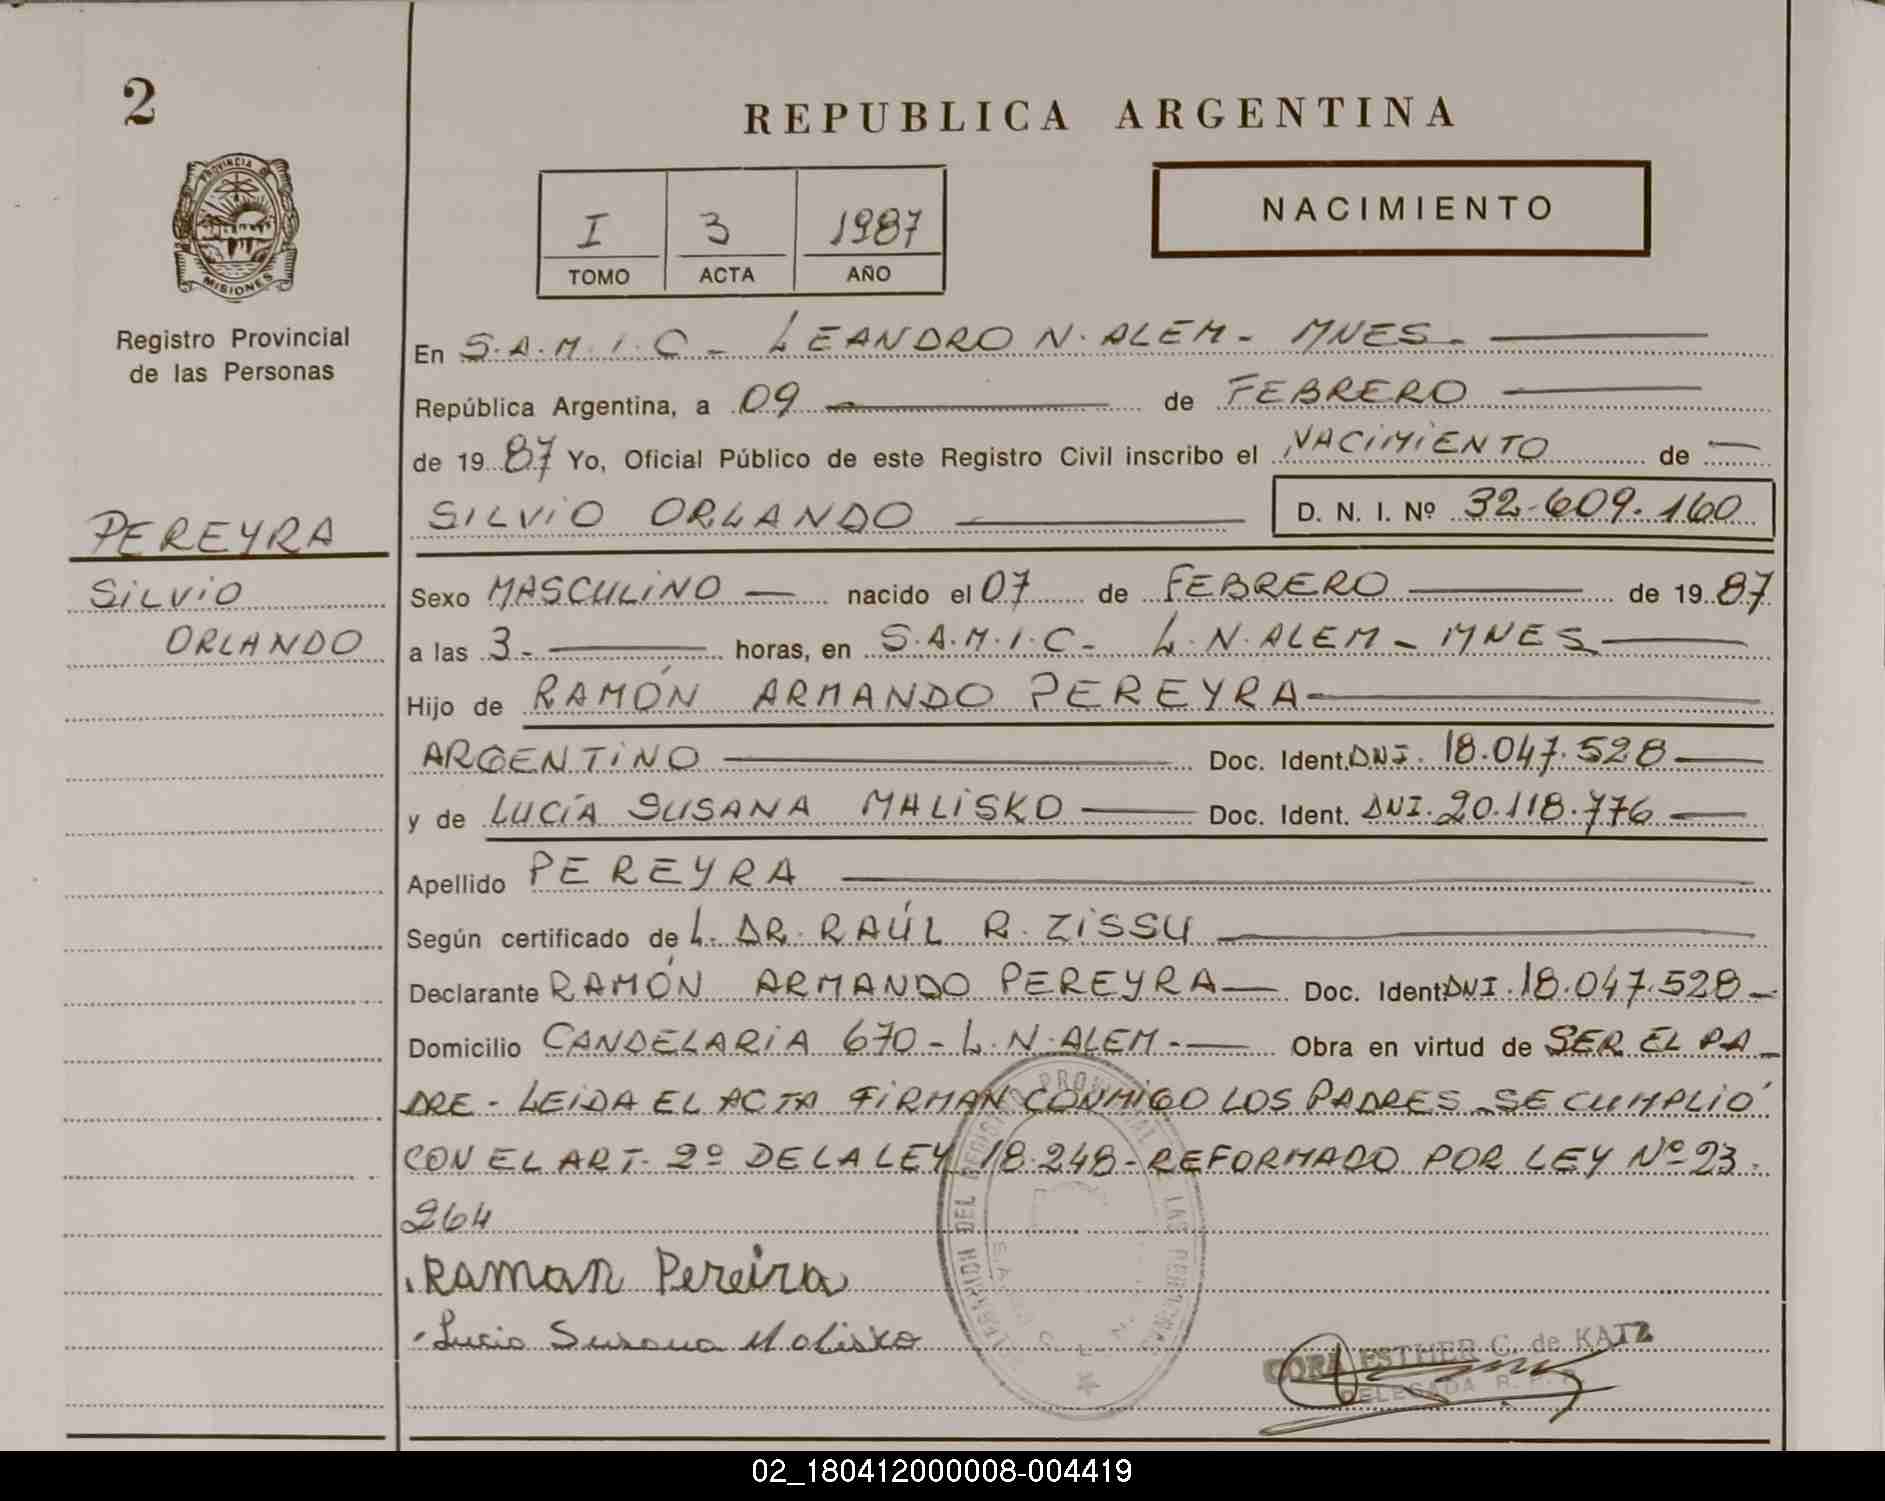 2
REPUBLICA ARGENTINA
PROVINCIA
MISIONES
I 3 1987
TOMO ACTA AÑO
NACIMIENTO
Registro Provincial
de las Personas
PEREYRA
SILVIO
ORLANDO
En S.A.M.I.C - LEANDRO N. ALEM - MNES -
República Argentina, a 09 de FEBRERO
de 1987 Yo, Oficial Público de este Registro Civil inscribo el NACIMIENTO de
SILVIO ORLANDO D. N. I. Nº 32.609.160
Sexo MASCULINO nacido el 07 de FEBRERO de 1987
a las 3 - horas, en S.A.M.I.C - L.N. ALEM - MNES
Hijo de RAMÓN ARMANDO PEREYRA
ARGENTINO Doc. Ident. DNI. 18.047.528
y de LUCÍA SUSANA MALISKO Doc. Ident. DNI. 20.118.776
Apellido PEREYRA
Según certificado de L. DR. RAÚL R. ZISSU
Declarante RAMÓN ARMANDO PEREYRA Doc. Ident. DNI. 18.047.528
Domicilio CANDELARIA 670 - L.N. ALEM - Obra en virtud de SER EL PA-
DRE - LEIDA EL ACTA FIRMAN CONMIGO LOS PADRES - SE CUMPLIÓ
CON EL ART. 2º DE LA LEY 18.248 - REFORMADO POR LEY Nº 23.
264
Raman Pereira
Lucia Susana Malisko
CORA ESTHER C. de KATZ
DELEGADA R. P. P.
02_180412000008-004419